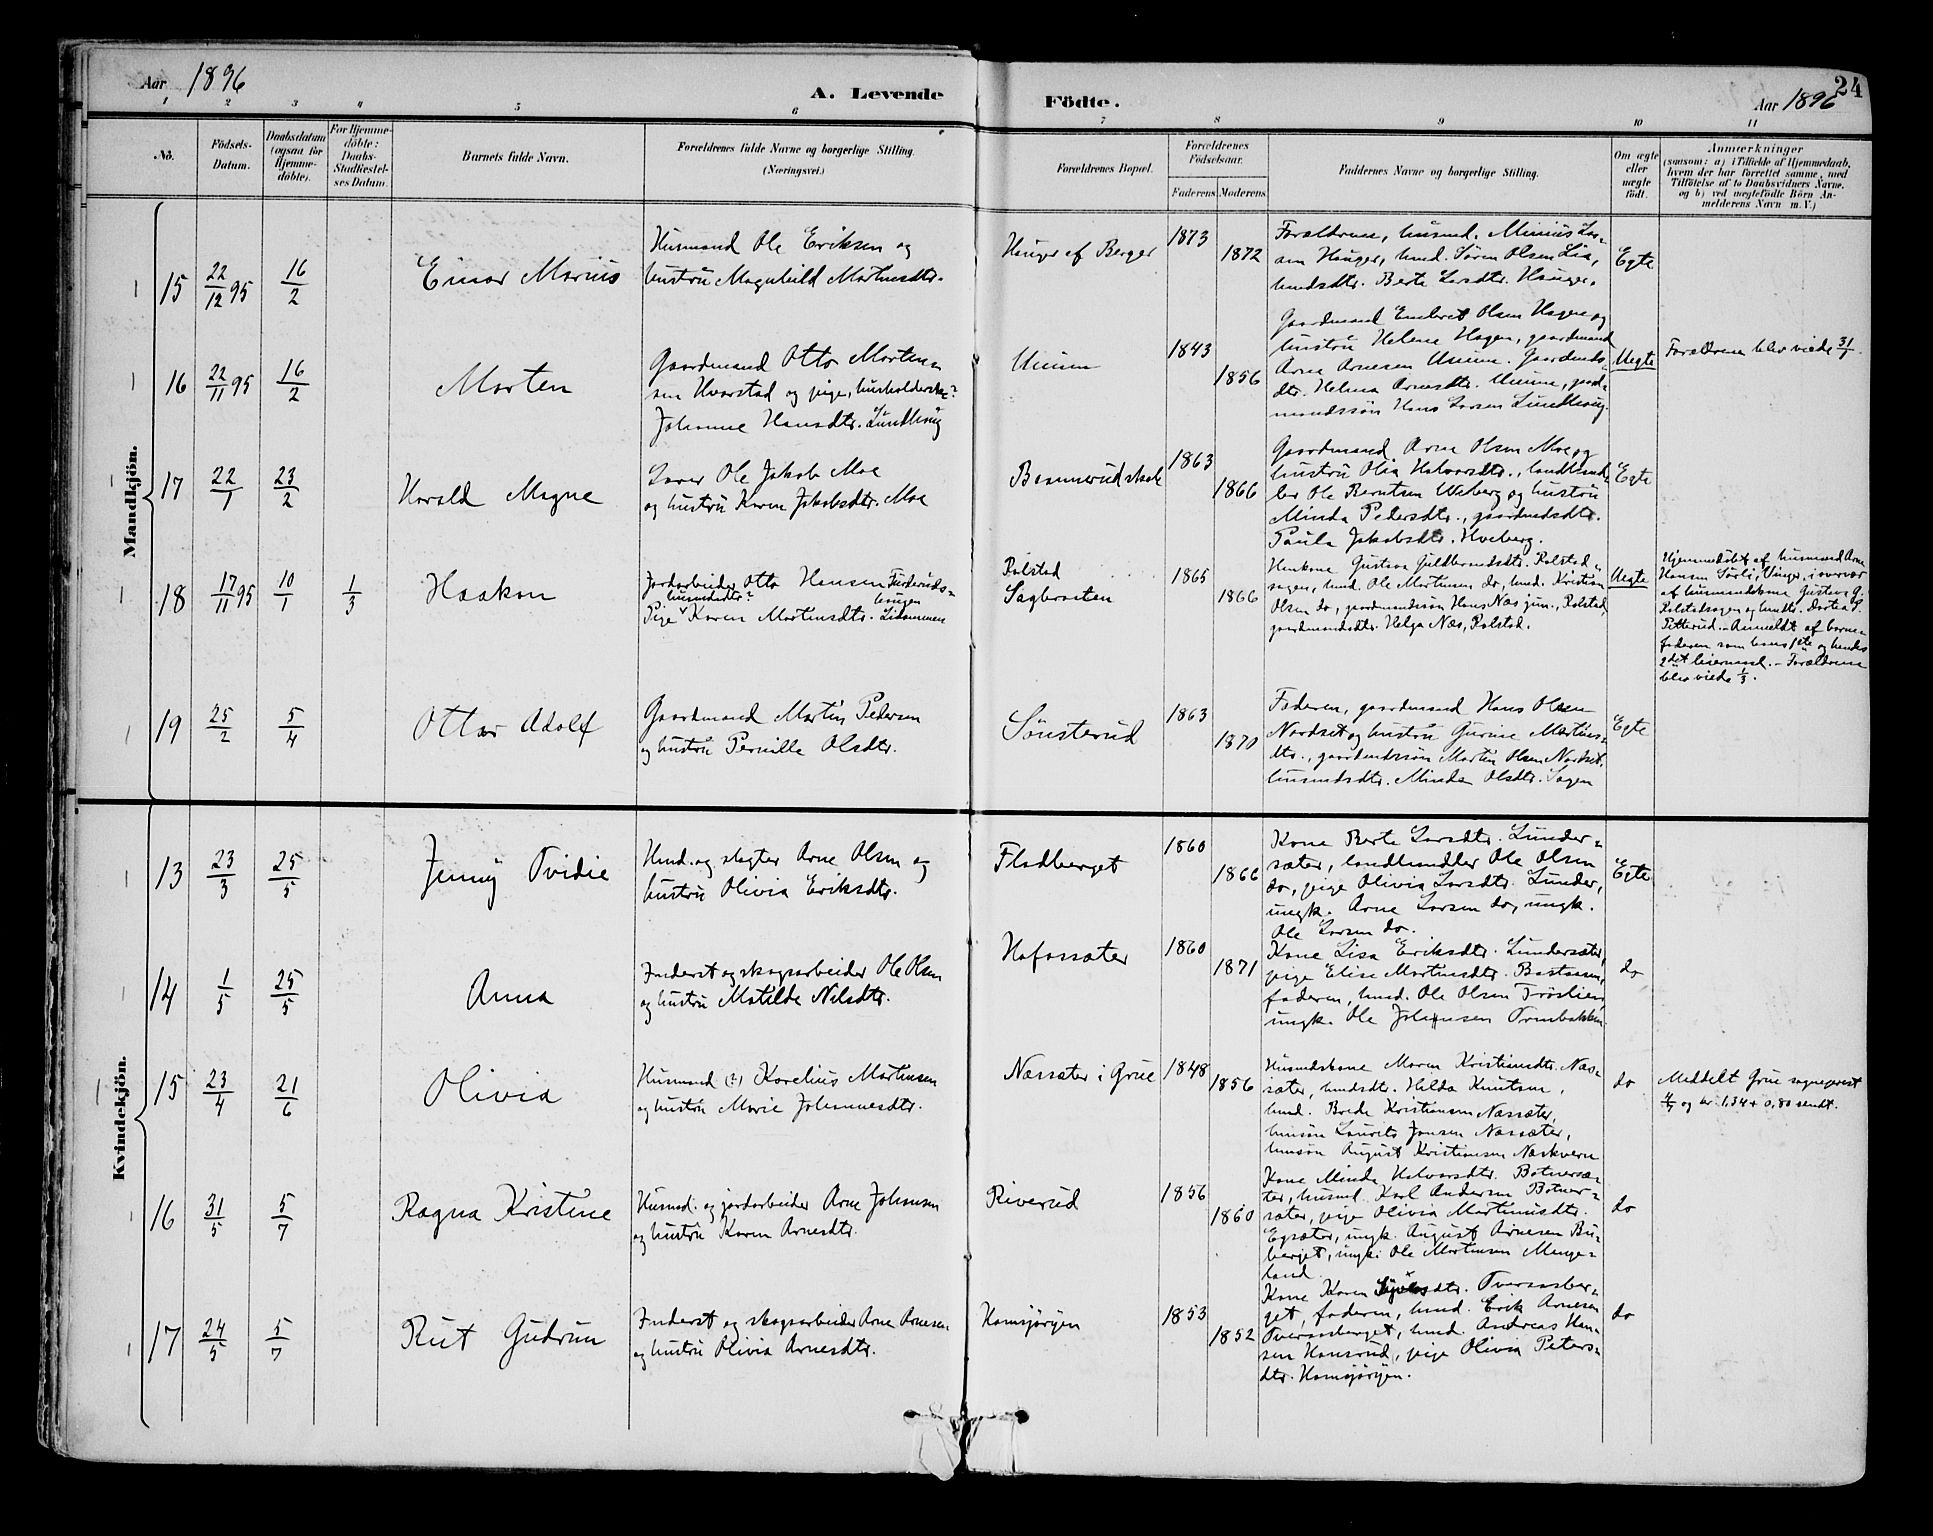 Aar 1896
A. Levende
Födte.
Aar 1896
24
1 2 3 4 5 6 7 8 9 10 11
No.
Födsels-
Datum.
Daabsdatum
(ogsaa for
Hjemme-
döbte).
For Hjemme-
döbte:
Daabs-
Stadfæstel-
ses Datum.
Barnets fulde Navn.
Forældrenes fulde Navne og borgerlige Stilling.
(Næringsvei.)
Forældrenes Bopæl.
Forældrenes
Födselsaar.
Faderens Moderens
Faddernes Navne og borgerlige Stilling.
Om ægte
eller
uægte
födt.
Anmærkninger
(saasom: a) i Tilfælde af Hjemmedaab,
hvem der har forrettet samme, med
Tilföielse af to Daabsvidners Navne,
og b) ved uægtefödte Börn An-
melderens Navn m. V.)
Mandkjön.
15 22/12 95 16/2
Einar Marius
Husmand Ole Eriksen og
hustru Magnhild Martinsdtr.
Hauger af Berger
1873
1872
Forældrene, husmd. Minius Lar-
sen Hauger, hmd. Sören Olsen Lia,
hmdsdtr. Berte Larsdtr. Hauger.
Egte
16 22/11 95 16/2
Morten
Gaardmand Otto Morten-
sen Hvarstad og pige, husholderske?
Johanne Hansdtr. Lundhaug
1843
1856
Gaardmand Embret Olsen Hagen og
hustru Helene Hagen, gaardmand
Arne Arnesen, gaardmds-
dtr. Helma Arnesdtr., gaard-
mandssön Hans Larsen Lundhaug.
Uegte
Forældrene blev viede 31/1.
17 22/1 23/2
Harald Magne
Larer Ole Jakob Moe
og hustru Karen Jakobsdtr. Moe
1863
1866
Gaardmand Arne Olsen Moe og
hustru Olia Halvorsdtr., landhand-
ler Ole Berntsen Weberg og hustru
Minda Pedersdtr., gaardmdsdtr.
Paula Jakobsdtr. Hveberg.
Egte
18 17/11 95 10/1 1/3
Haakon
Jordarbeider Otto Hansen Furderuds-
haugen
husmdsdtr?
Pige Karen Martinsdtr. Lidammen
Rolstad
Sagbraaten
1865
1866
Huskone Gustava Guldbrandsdtr. Rolstad-
sagen, hmd. Ole Martinsen do, hmd. Kristian
Olsen do, gaardmandssön Hans Næs jun., Rolstad,
gaardmandsdtr. Helga Næs, Rolstad.
Uegte
Hjemmedöbt af husmand Arne
Hansen Sörli, Vinger, i overvær
af husmandskone Gustava G.
Rolstadsagen og hmdtr. Dortea P.
Pitterud. - Anmeldt af barne-
faderen som hans 1ste og hendes
2det leiermaal. - Forældrene
blev viede 1/3.
19 25/2 5/4
Ottar Adolf
Gaardmand Martin Pedersen
og hustru Pernille Olsdtr.
Sönsterud
1863
1870
Faderen, gaardmand Hans Olsen
Nordset og hustru Gurine Martins-
dtr., gaardmdssön Martin Olsen Nordset,
husmdsdtr. Minda Olsdtr. Sagen
Egte
Kvindekjön.
13 23/3 25/5
Jenny Ovidie
Hmd. og slagter Arne Olsen og
hustru Olivia Eriksdtr.
Flodberget
1860
1866
Kone Berte Larsdtr. Lunder-
sæter, landhandler Ole Olsen
do, pige Olivia Larsdtr. Lunder,
ungk. Arne Larsen do, ungk.
Ole Larsen do.
Egte
14 1/5 25/5
Anna
Inderst og skogsarbeider Ole Olsen
og hustru Matilde Nilsdtr.
Hofossæter
1860
1871
Kone Lisa Eriksdtr. Lundersæter,
pige Elise Martinsdtr. Bastaasen,
faderen, hmd. Ole Olsen Fröslien,
ungk. Ole Johansen
do
15 23/4 21/6
Olivia
Husmand (?) Karelius Martinsen
og hustru Marie Johannesdtr.
Næssæter i Grue
1848
1856
Husmdskone Maren Kristiansdtr. Næs-
sæter, hmdsdtr. Hilda Knutsen,
hmd. Brede Kristiansen Næssæter,
hmsön Laurits Jansen Næssæter,
hmsön August Kristiansen Næskvern
do
Meddelt Grue sogneprest
4/7 og kr. 1,34 + 0,80 sendt.
16 31/5 5/7
Ragna Kristine
Husmd. og jordarbeider Arne Johansen
og hustru Karen Arnesdtr.
Riverud
1856
1860
Kone Minda Halvorsdtr. Botnersæ-
ter, husmd. Karl Andersen Botner-
sæter, pige Olivia Martinusdtr.
Egsæter, ungk. August Arnesen Bu-
berget, ungk. Ole Martinsen Menge-
land.
do
17 24/5 5/7
Rut Gudrun
Inderst og skogsarbeider Arne Arnesen
og hustru Olivia Arnesdtr.
Hamsjörjen
1853
1852
Kone Karen Tveraasber-
get, faderen, hmd. Erik Arnesen
Tveraasberget, hmd. Andreas Han-
sen Hansrud, pige Olivia Peters-
dtr. Hamsjörjen.
do